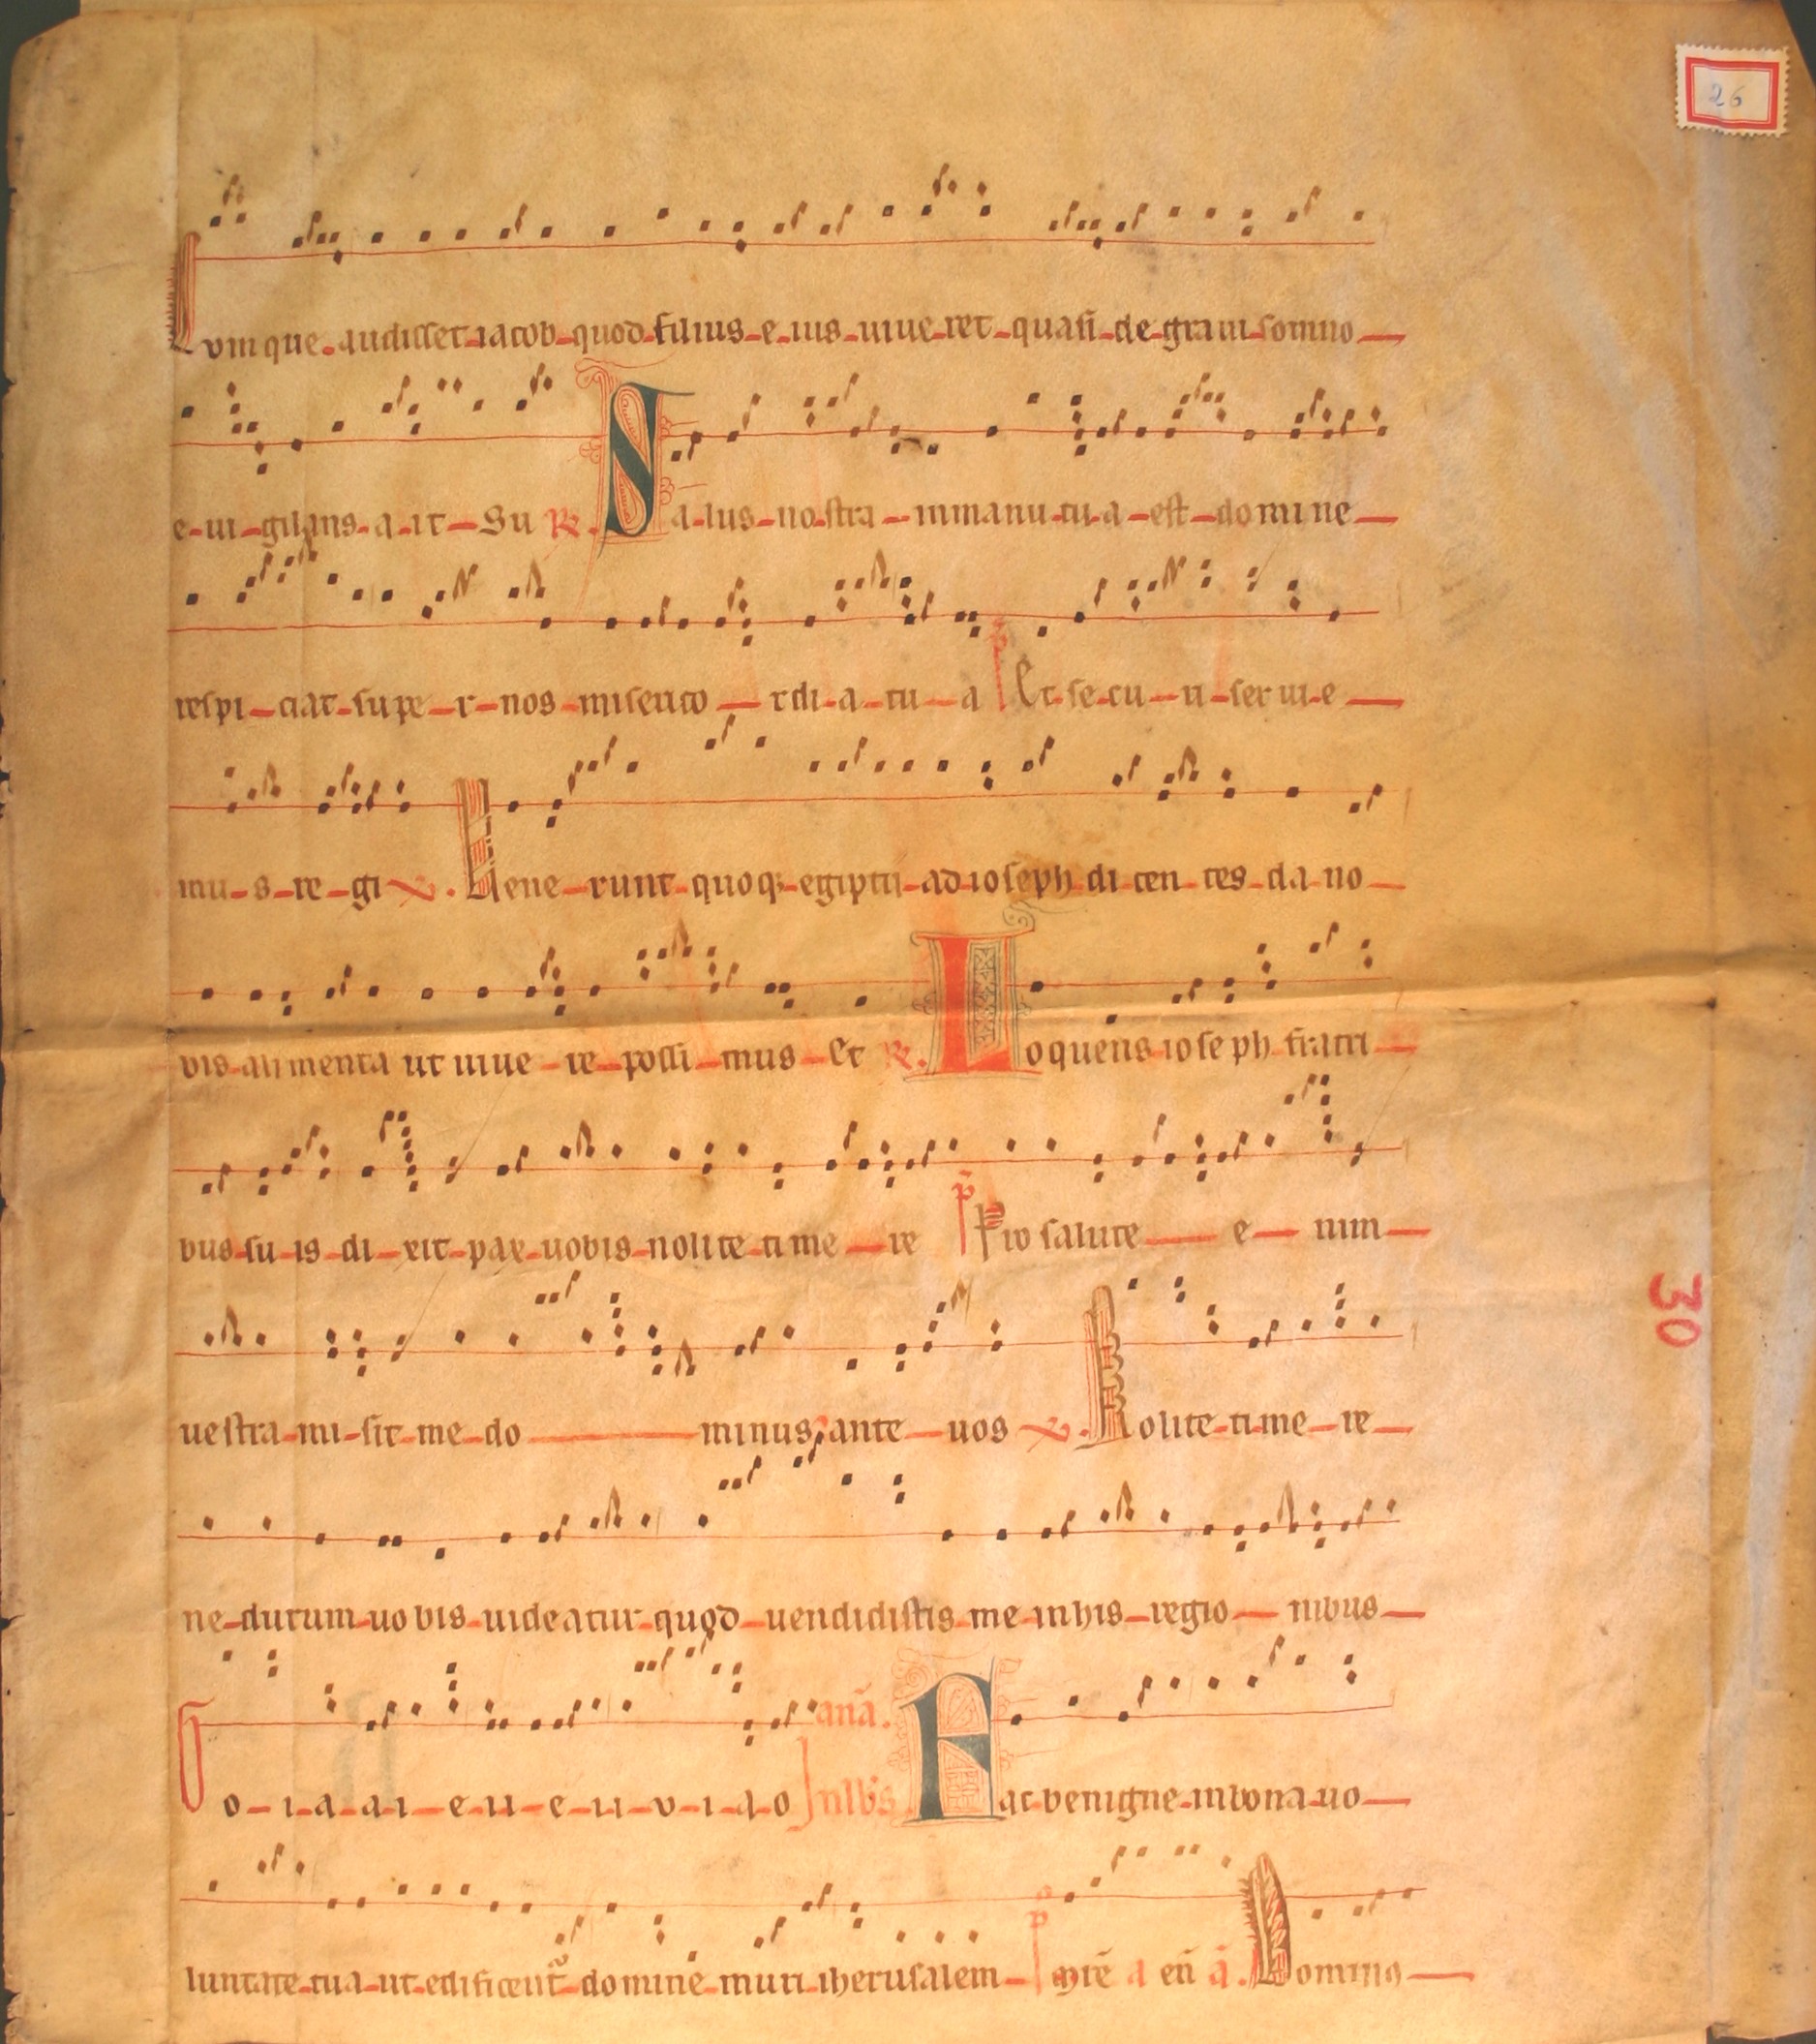 26
Cumque audisset iacob quod filius eius uiueret quasi de graui somno
euigilans ait Su R. Salus nostra inmanu tua est domine
respiciat super nos misericordia tua p Et securi seruie
mus regi V. Uenerunt quoq; egiptij ad ioseph dicentes da no
bis alimenta ut uiuere possimus Et R. Loquens ioseph fratri
bus suis dixit pax uobis nolite timere p̄ Pro salute enim
uestra misit me dominus ante uos V. Nolite timere
30
ne durum uobis uideatur quod uendidistis me inhis regionibus
anā.
o i a a i e u e u o i a o Fac benigne inbona uo
luntate tua ut edificent᷑ domine muri iherusalem p Domine